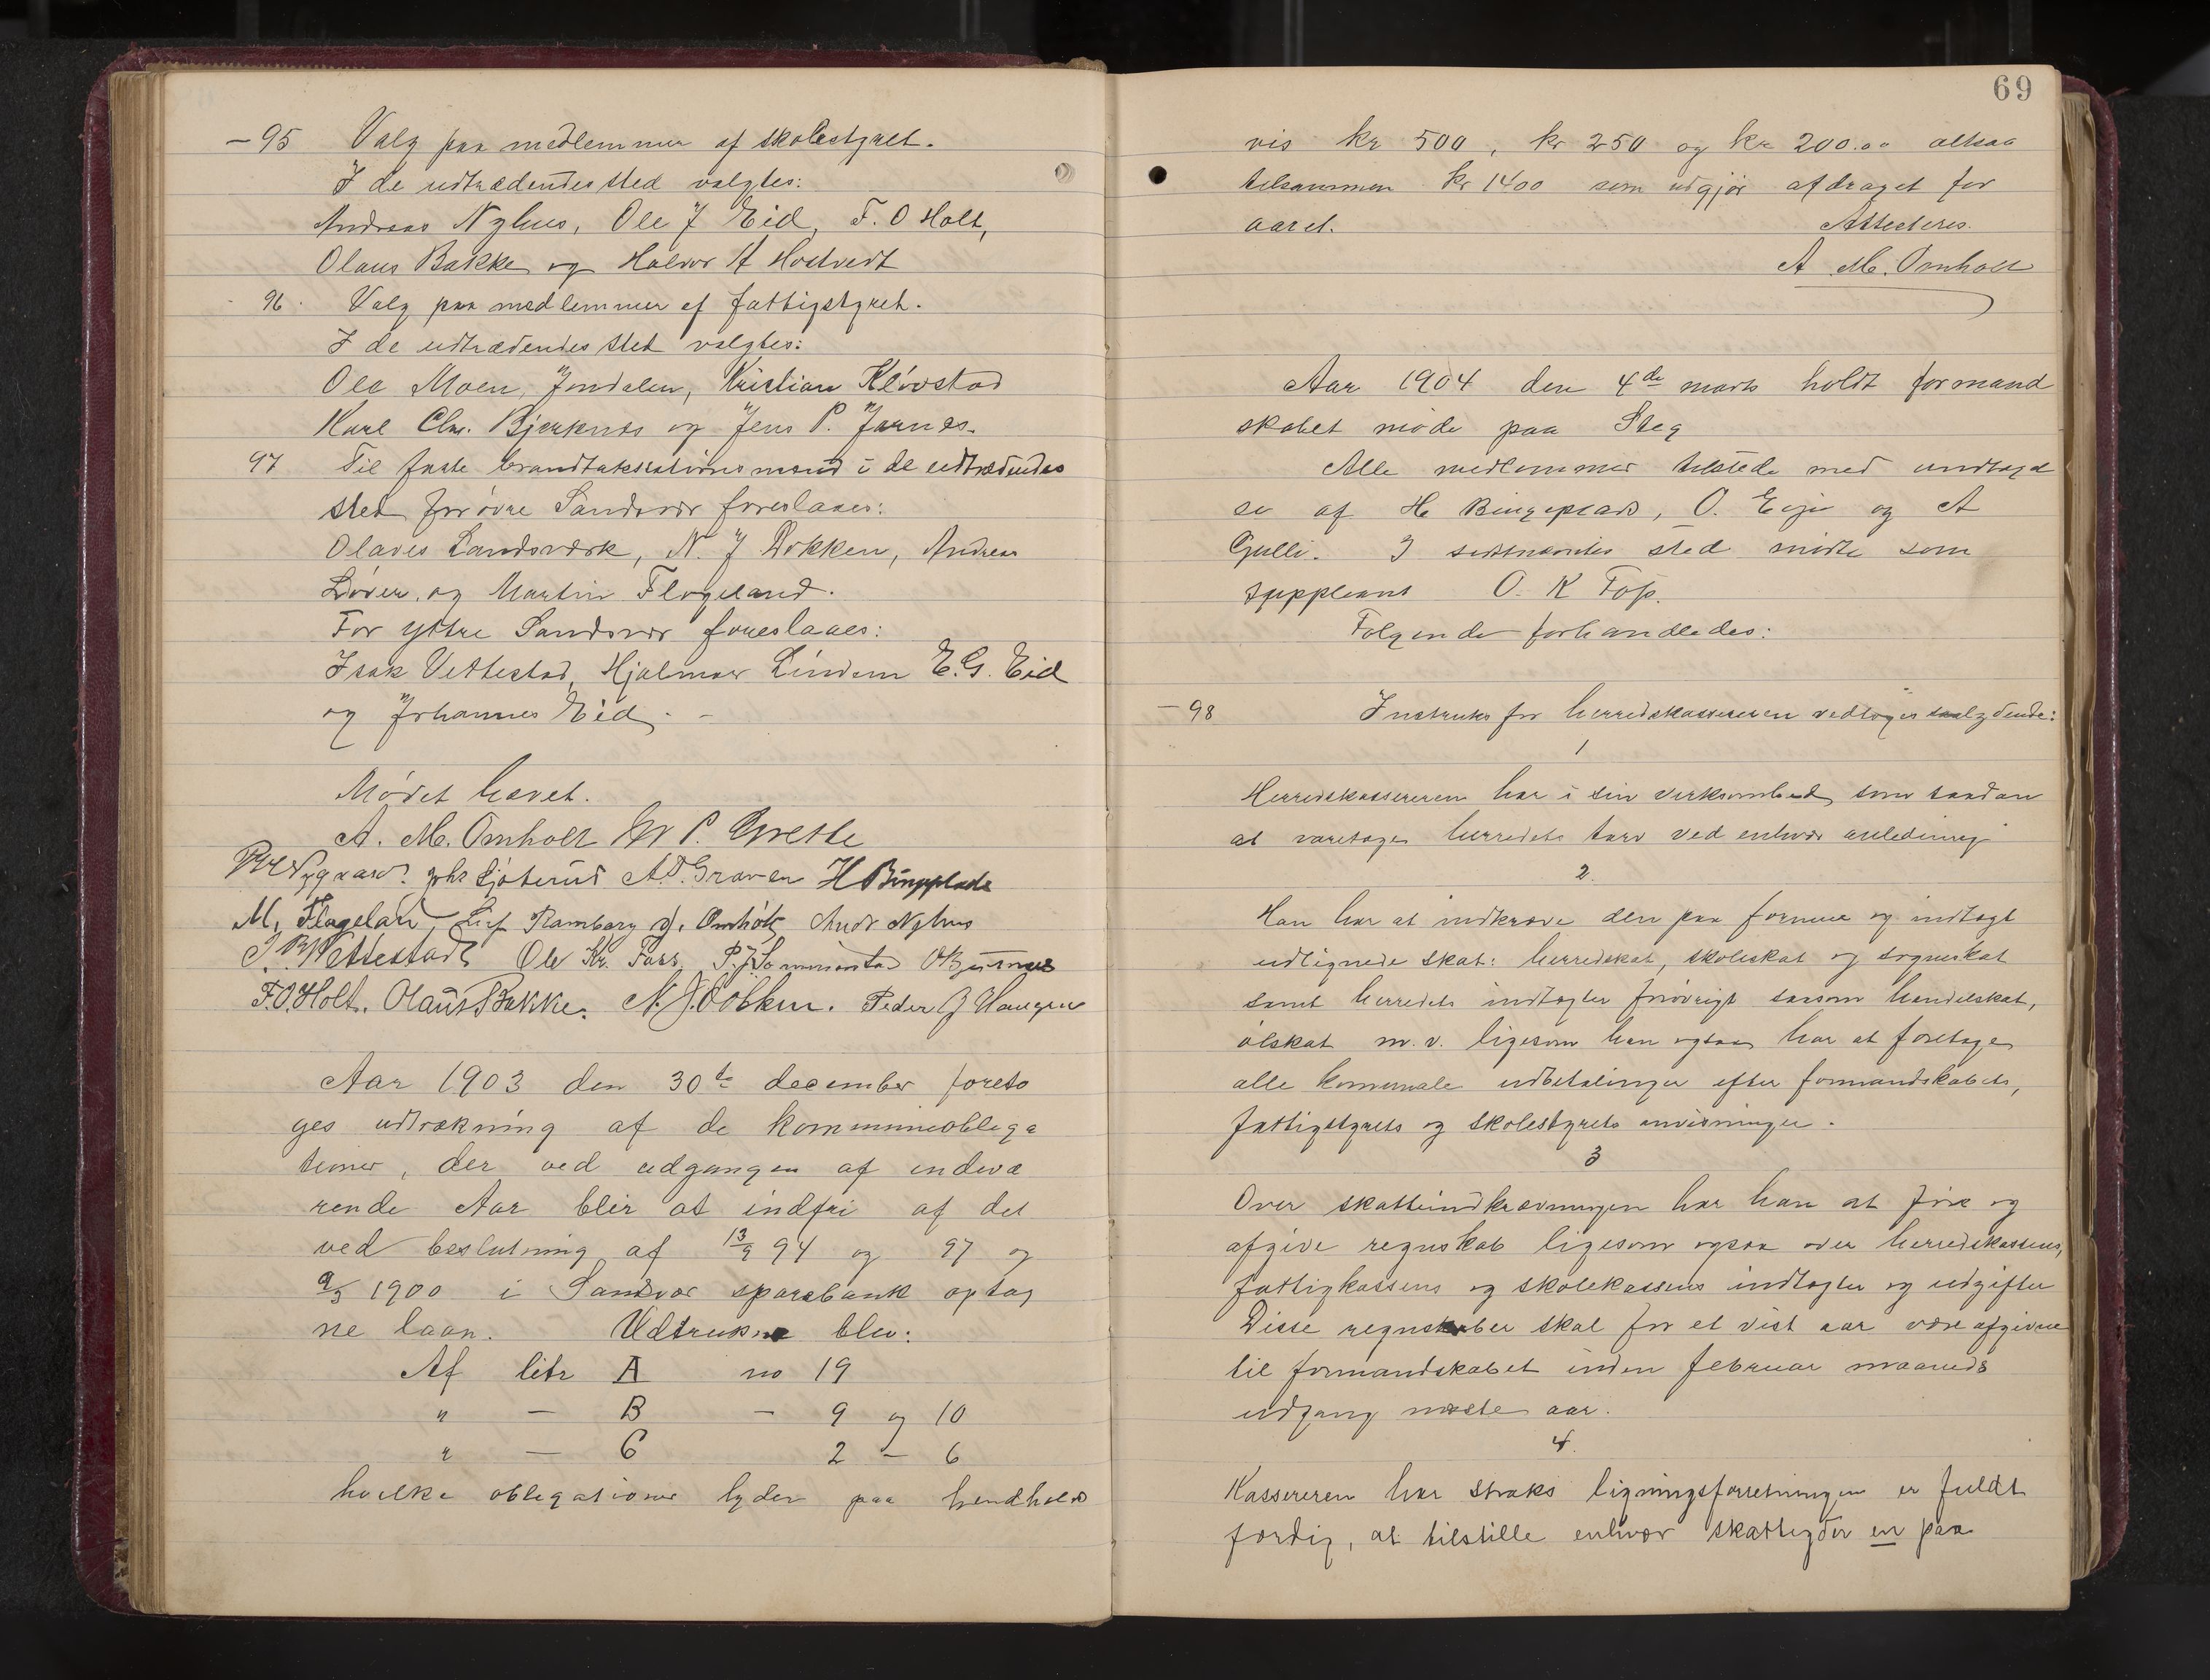 - 95 Valg paa medlemmer af skolestyret.
I de udtrædendes sted valgtes:
Andreas Nyhus, Ole J Eid, F. O Holt,
Olaus Bakke og Halvor H Hostvedt
96. Valg paa medlemmer af fattigstyret.
I de udtrædendes sted valgtes:
Ole Moen, Jondalen, Kristian Kløvstad
Karl Chr. Bjerknes og Jens P. Jarnes.
97 Til faste brandtakstationsmænd i de udtrædendes
sted for øvre Sandsvær foreslaaes:
Olaves Landsværk, N. J Dokken, Andreas
Løver og Martin Flageland.
For ytre Sandsvær foreslaaes:
Isak Vettestad, Hjalmar Lindem E. G. Eid
og Johannes Eid. -
Mødet hævet.
A. M. Omholt P. Grette
Nygaard. Joh. A. Graven H Bingplads
M. Flageland Leif Ramberg J. Omholt Andr Nyhus
Vettestad Ole Kr. Foss.
F. O. Holt. Olaus Bakke. N. J. Dokken. Peder J Haugen
Aar 1903 den 30te december foreto
ges udtrækning af de kommuneobliga
tioner, der ved udgangen af indevæ
rende Aar blir at indfri af det
ved beslutning af 13/9 94 og 97 og
9/3 1900 i Sandsvær sparebank optag
ne laan. Udtrukne blev:
Af litr A no 19
" — B — 9 og 10
" — C 2 — 6
hvilke obligationer lyder paa henholds
69
vis kr 500, kr 250 og kr 200.00 altsaa
tilsammen kr 1400 som udgjør afdraget for
aaret. Attesteres.
A. M. Omholt
Aar 1904 den 4de marts holdt formand
skabet møde paa Steg
Alle medlemmer tilstede med undtagel
se af H Bingeplads, O. Eije og A
Gulli. I sidstnævntes sted mødte som
suppleant O. K Foss.
Følgende forhandledes:
- 98 Instruks for herredskassereren vedtoges saalydende:
1
Herredskassereren har i sin virksomhed som saadan
at varetage herredets tarv ved enhver anledning
2.
Han har at indkræve den paa formue og indtægt
udlignede skat: herredskat, skoleskat og sogneskat
samt herredets indtægter forøvrigt saasom handelskat,
ølskat m. v. ligesom han ogsaa har at foretage
alle komunale udbetalinger efter formandskabets,
fattigstyrets og skolestyrets anvisninger.
3
Over skatteindkrævningen har han at føre og
afgive regnskab ligesom ogsaa over herredskassens,
fattigkassens og skolekassens indtægter og udgifter
Disse regnskaber skal for et vist aar være afgivne
til formandskabet inden februar maaneds
udgang næste aar.
4.
Kassereren har straks ligningsforretningen er fuldt
færdig, at tilstille enhver skatteyder en paa